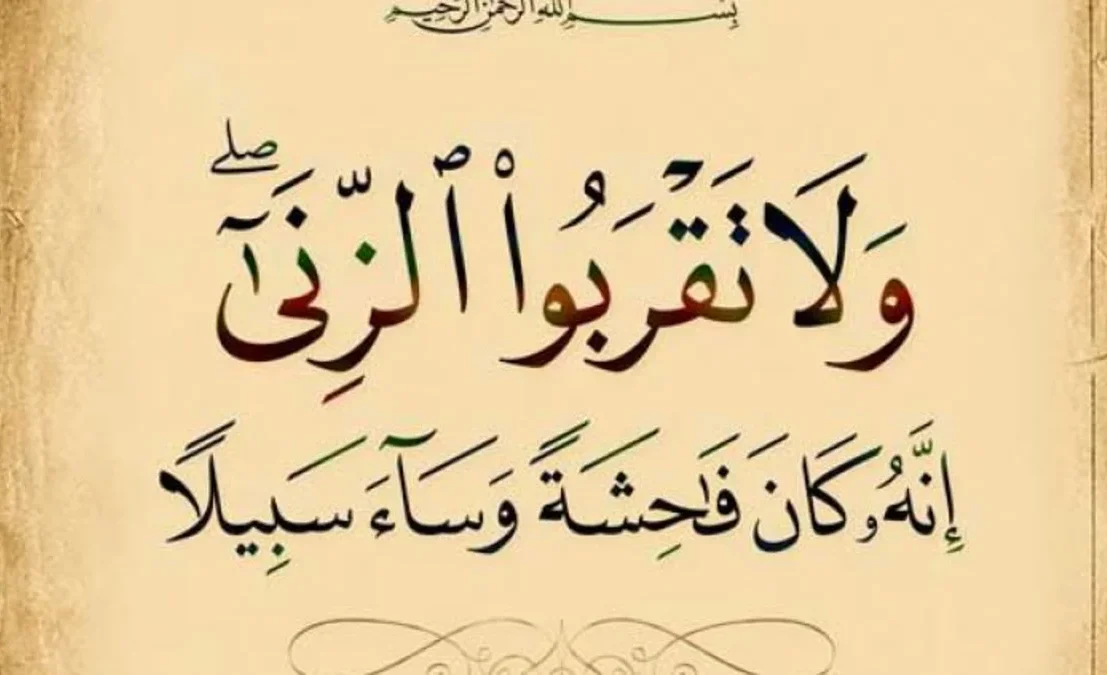 بِسْمِ اللهِ الرَّحْمٰنِ الرَّحِيمِ
وَلَا تَقْرَبُوا۟ ٱلزِّنَىٰٓ ۖ
إِنَّهُۥ كَانَ فَـٰحِشَةً وَسَآءَ سَبِيلًا